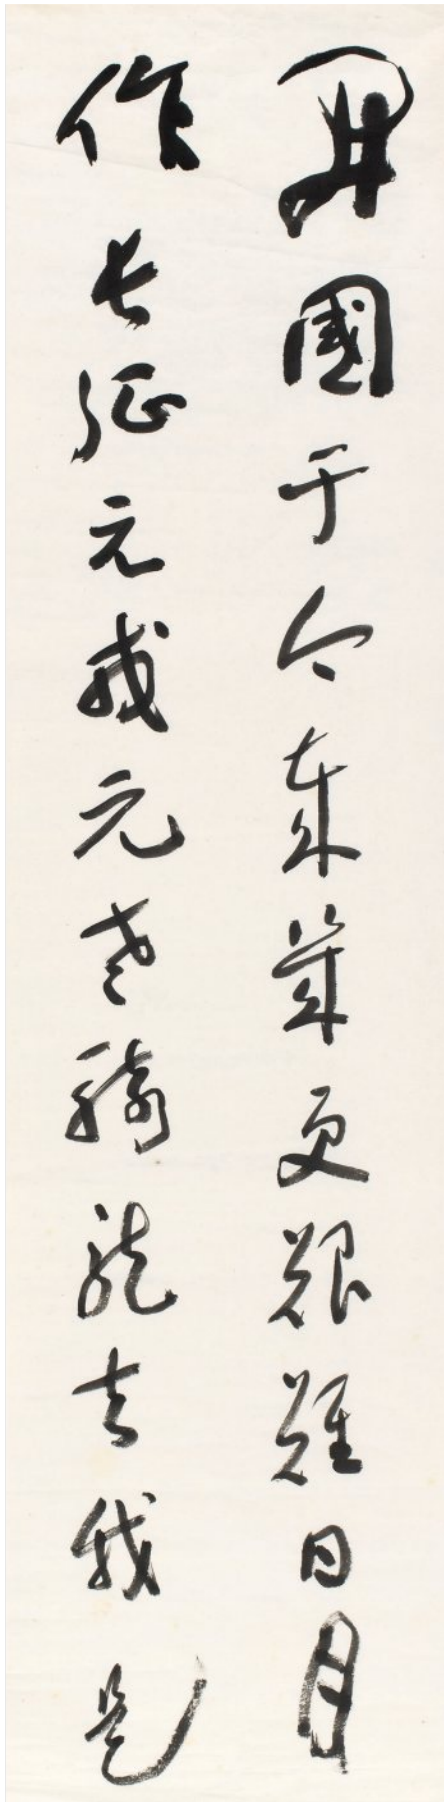 開國于今更艱難日月
作長征元戎元老騎龍去我是